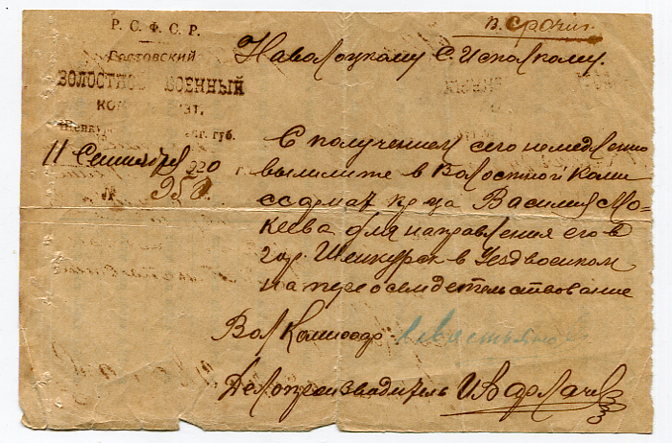 в. срочн.
Р. С. Ф. С. Р.
Ростовский
ВОЛОСТНОЙ ВОЕННЫЙ
Шенкур губ.
11 Сентября 1920 г
№ 950
Наволоцкому С. Исполкому.
С получением сего немедленно
вышлите в Волостной Коми
ссариат кр-ца Василия Мо-
кеева для направления его в
гор. Шенкурск в Уездвоенком
на переосвидетельствование
Вол Комиссар Севастьянов
Делопроизводитель